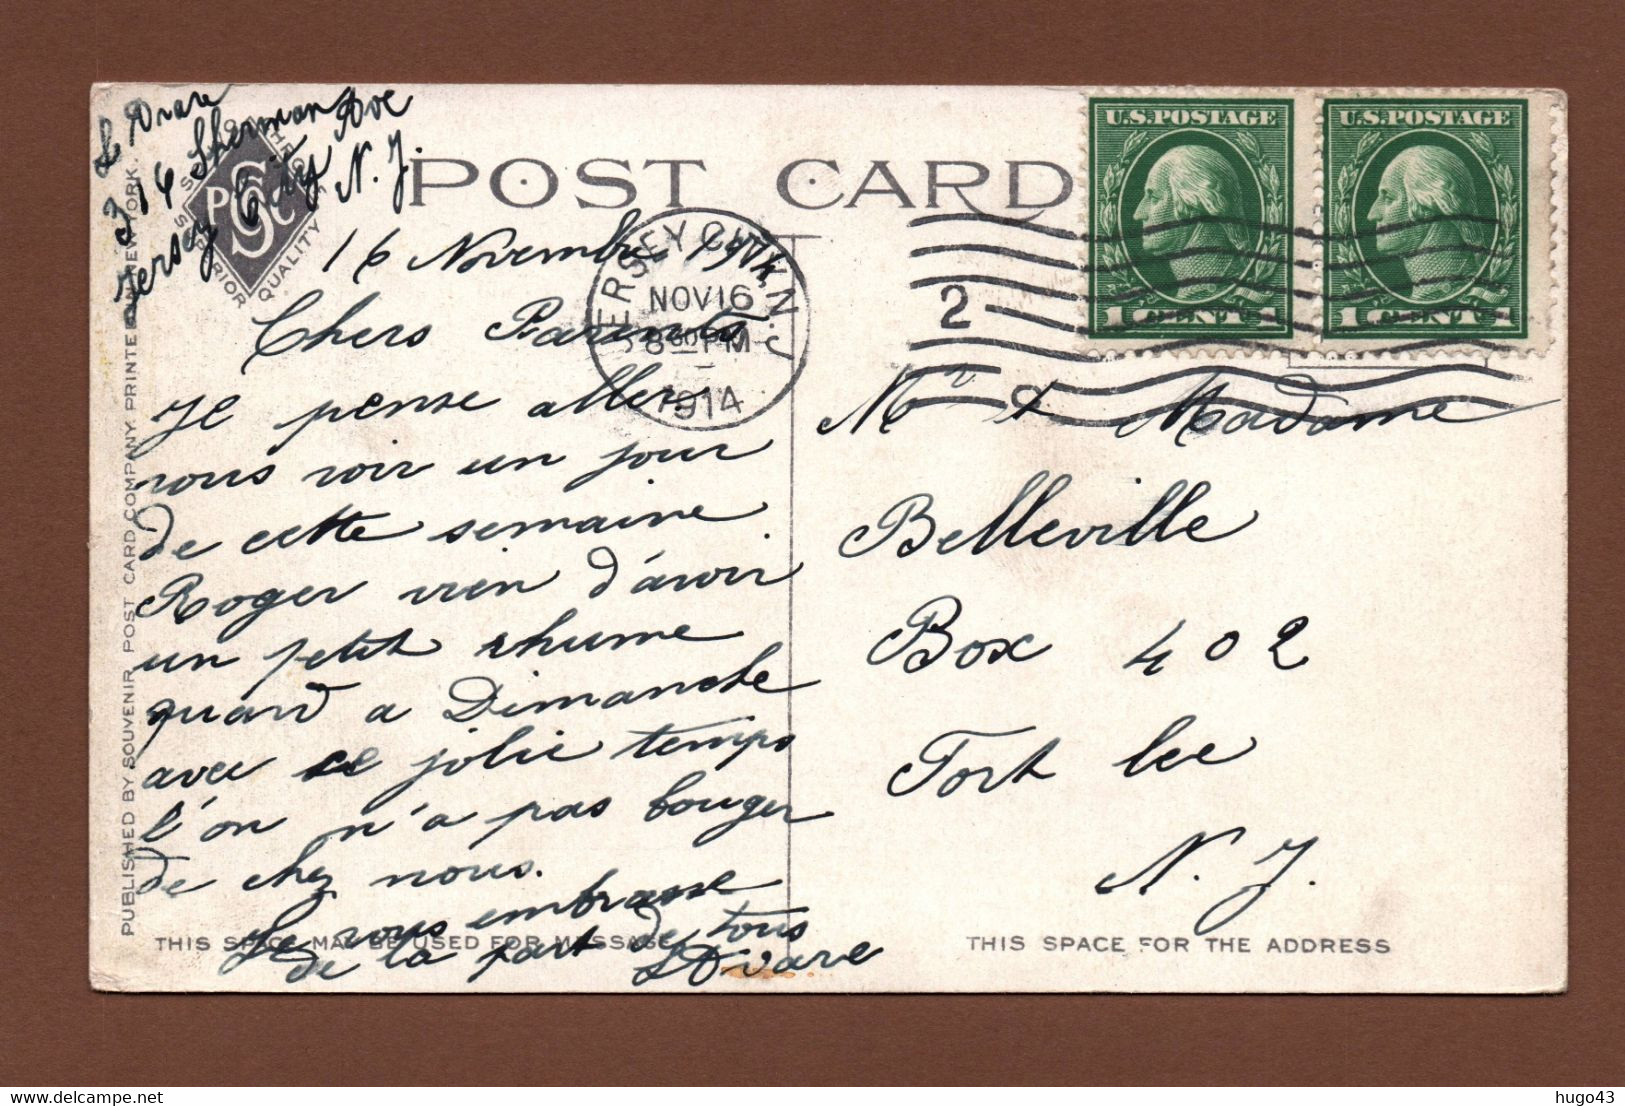 L Drare
314 Sherman Ave
Jersey City N. J.
POST CARD
16 Novembre 1914
Chers Parents
Je pense aller
vous voir un jour
de cette semaine
Roger vien d'avoir
un petit rhume
quand a Dimanche
avec ce jolie temps
l'on n'a pas bouger
de chez nous.
Je vous embrasse
de la part de tous
L Drare
PUBLISHED BY SOUVENIR POST CARD COMPANY. PRINTED IN NEW YORK.
THIS SPACE MAY BE USED FOR MESSAGE
JERSEY CITY, N.J.
NOV 16
8 PM
1914
2
U.S. POSTAGE
1 CENT 1
U.S. POSTAGE
1 CENT 1
Mr & Madame
Belleville
Box 402
Fort Lee
N. J.
THIS SPACE FOR THE ADDRESS
hugo43